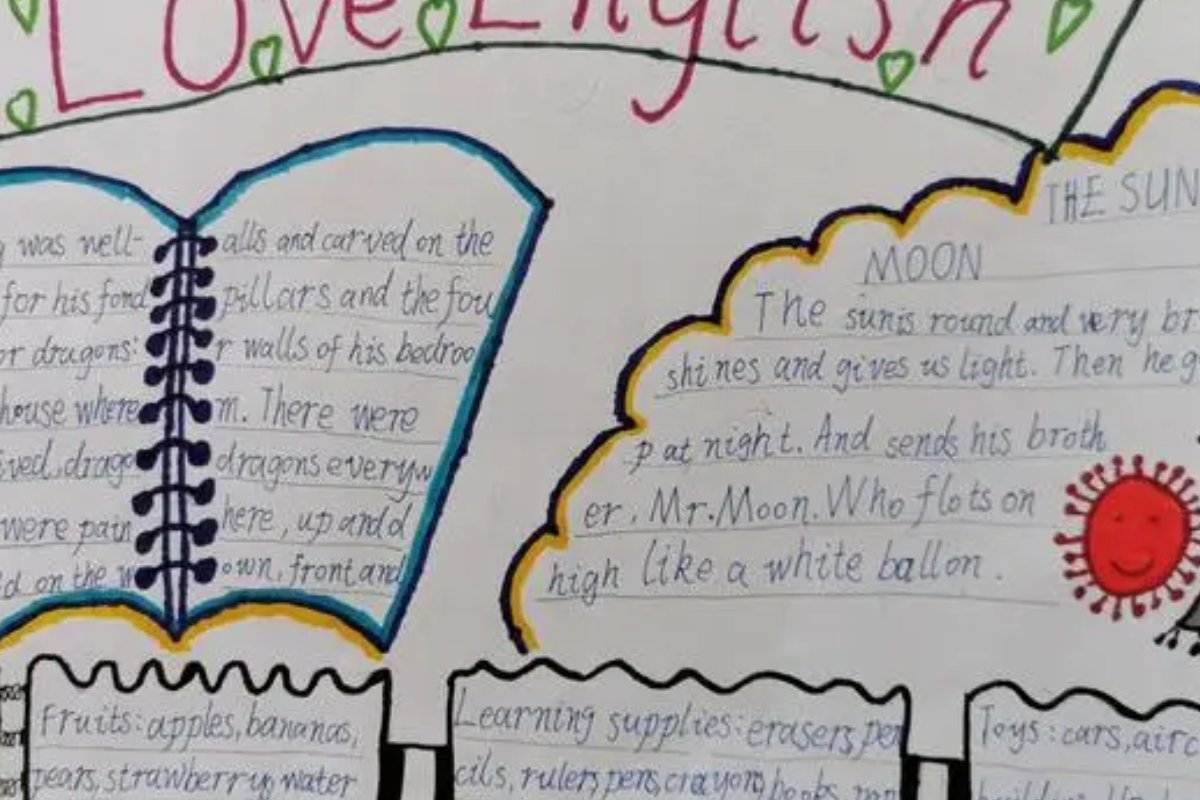 Love English
was well-
for his fond
or dragons:
house where
ved, drago
were pain
d on the w
alls and carved on the
pillars and the fou
r walls of his bedroo
m. There were
dragons everyw
here, up and d
own, front and
THE SUN
MOON
The sun is round and very br
shines and gives us light. Then he g
p at night. And sends his broth
er, Mr. Moon. Who flots on
high like a white ballon.
Fruits: apples, bananas,
pears, strawberry, water
Learning supplies: erasers, pen
cils, rulers, pens, crayons, books
Toys: cars, airc